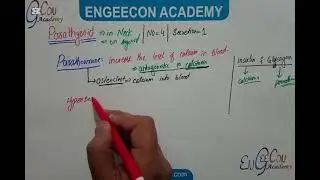 ENGEECON ACADEMY
Parathyroid → in Neck | No = 4 | Secretion = 1
→ on thyroid
Parathormone: increase the level of calcium in blood
→ antagonistic to calcitonin
→ osteoclast → calcium into blood
Insulin & Glucagon
↓ calcitonin
Hypose
ENGEECON
Academy
.com